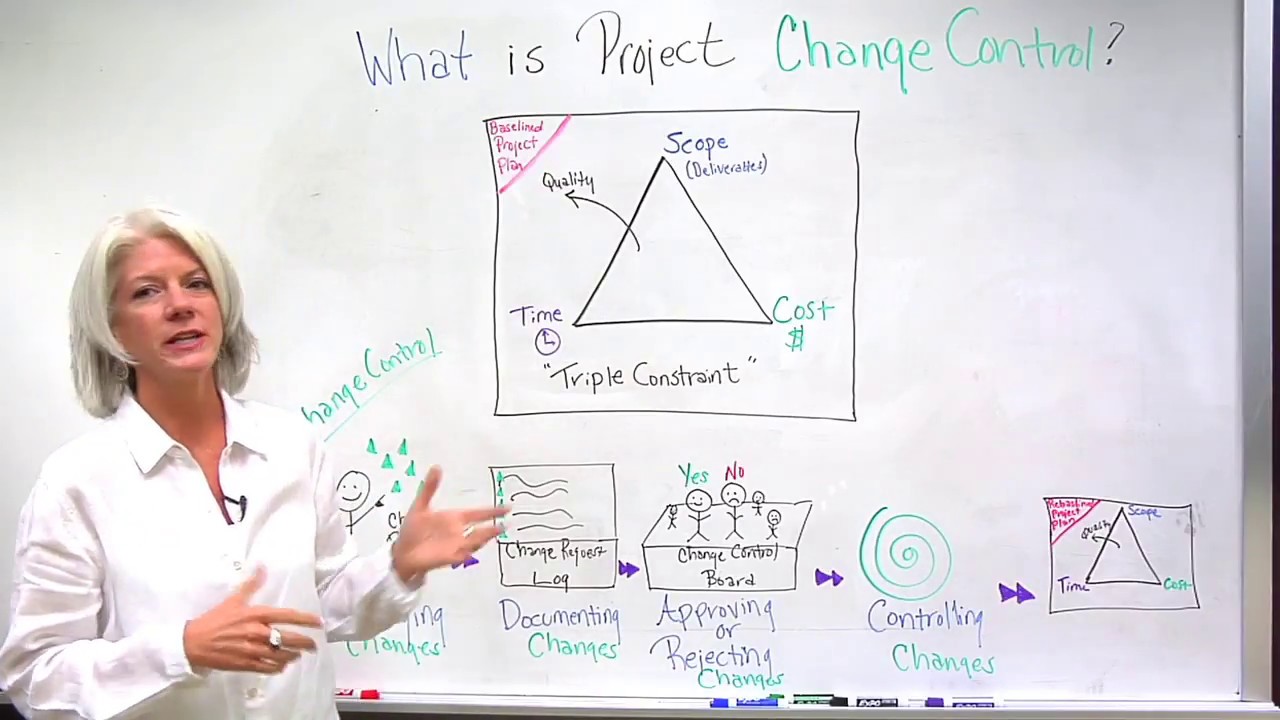 What is Project Change Control?
Baselined
Project
Plan
Scope
(Deliverables)
Quality
Time
Cost
$
"Triple Constraint"
hange Control
Yes No
Ch
Change Request
Log
Change Control
Board
ing
Changes
Documenting
Changes
Approving
or
Rejecting
Changes
Controlling
Changes
Project
Plan
Scope
Quality
Time
Cost
EXPO